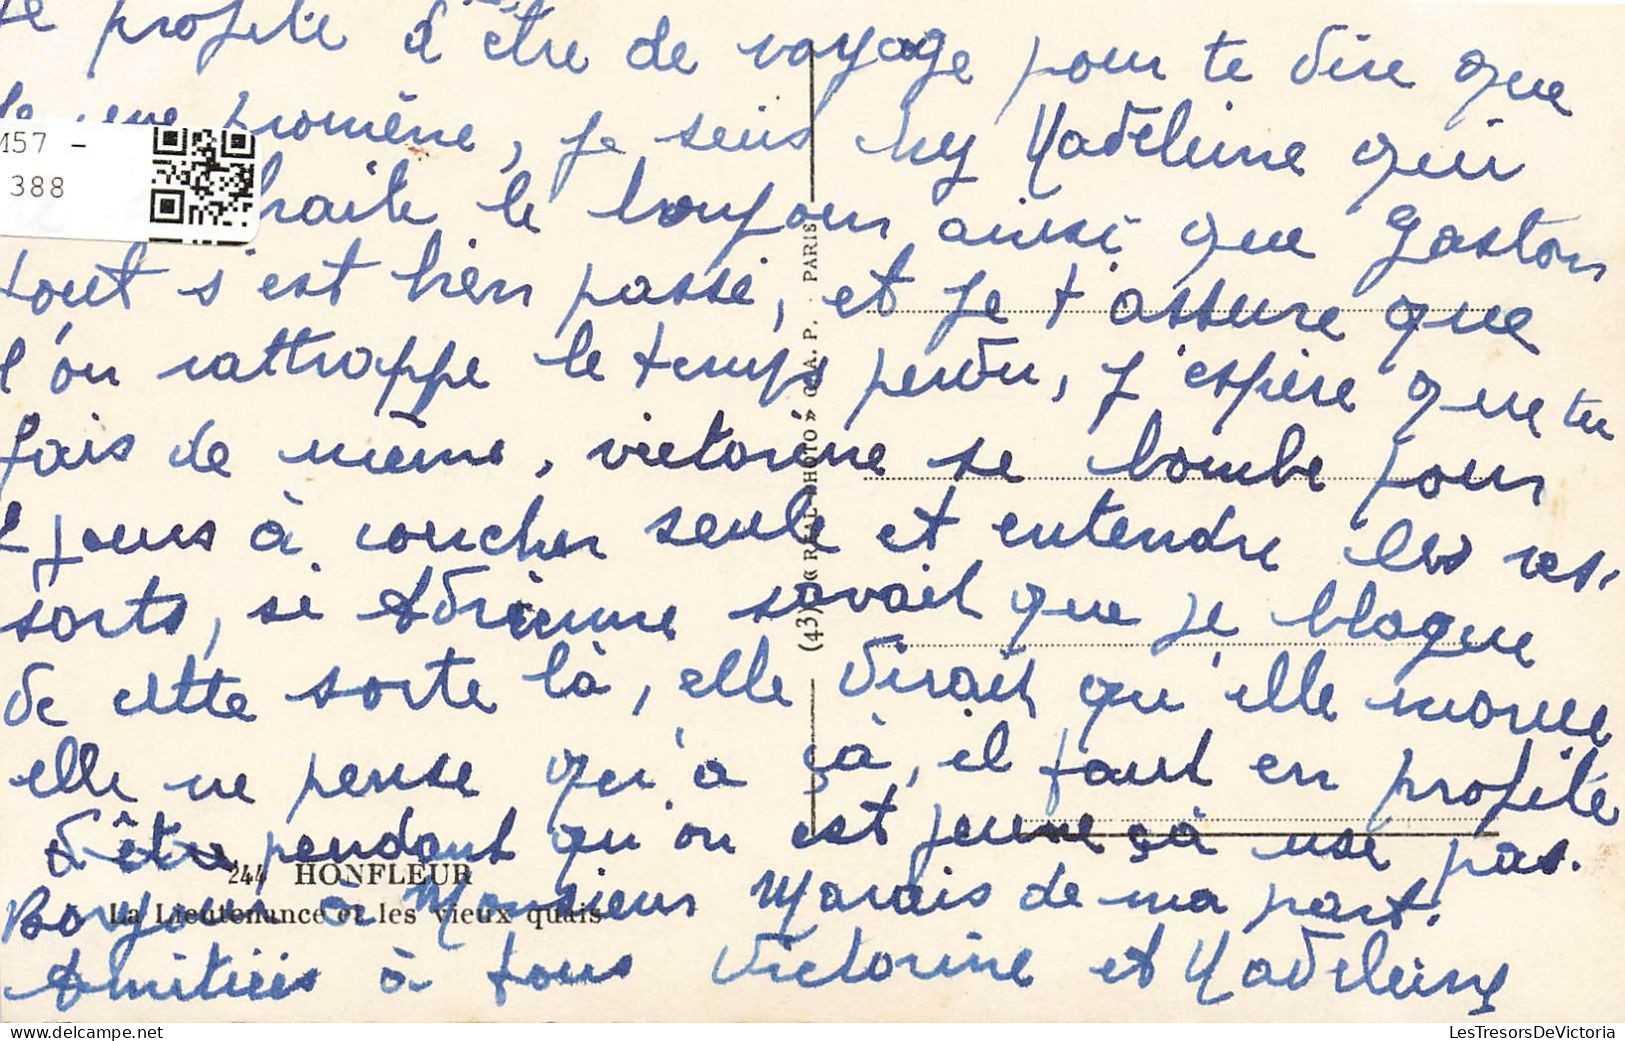 Je profite d'être de voyage pour te dire que
promène, je suis chez Madeleine qui
le bonjour ainsi que Gaston
tout s'est bien passé, et je t'assure que
l'on rattrappe le temps perdu, j'espère que tu
fais de même, victorine se bombe pour
2 jours à coucher seule et entendre les res-
sorts, si Adrienne savait que je blague
de cette sorte là, elle dirait qu'elle
elle ne pense qu'à çà, il faut en profité
d'être pendant qu'on est jeune çà use pas.
Bonjour à Monsieur Marais de ma part.
Amitiés à tous Victorine et Madeleine
M57 -
388
244 HONFLEUR
La Lieutenance et les vieux quais
(43) « REAL-PHOTO » C. A. P. - PARIS
LesTresorsDeVictoria